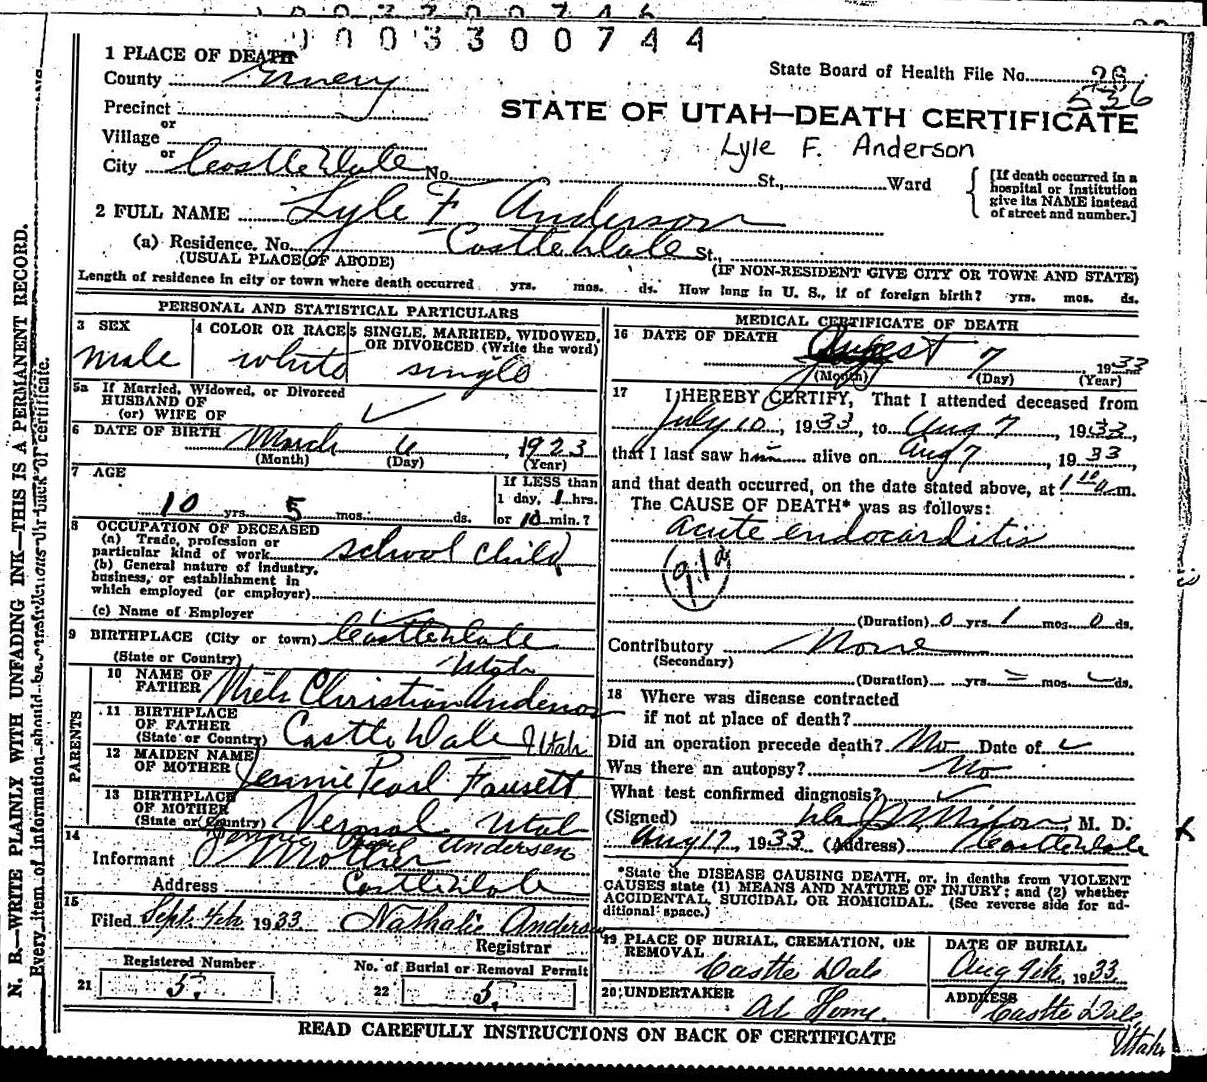 0003300744
1 PLACE OF DEATH
County Emery
State Board of Health File No. 26
536
Precinct
STATE OF UTAH—DEATH CERTIFICATE
or
Village
Lyle F. Anderson
or
City Castle Dale No. St., Ward
[If death occurred in a hospital or institution give its NAME instead of street and number.]
2 FULL NAME Lyle F Anderson
(a) Residence, No. Castle Dale St.,
(USUAL PLACE OF ABODE) (IF NON-RESIDENT GIVE CITY OR TOWN AND STATE)
Length of residence in city or town where death occurred yrs. mos. ds. How long in U. S., if of foreign birth? yrs. mos. ds.
PERSONAL AND STATISTICAL PARTICULARS
3 SEX
male
4 COLOR OR RACE
white
5 SINGLE, MARRIED, WIDOWED, OR DIVORCED (Write the word)
single
5a If Married, Widowed, or Divorced
HUSBAND OF
(or) WIFE OF
6 DATE OF BIRTH March 6, 1923
(Month) (Day) (Year)
7 AGE
10 yrs. 5 mos. ds.
If LESS than
1 day, 1 hrs.
or 10 min.?
8 OCCUPATION OF DECEASED
(a) Trade, profession or
particular kind of work school child
(b) General nature of industry,
business, or establishment in
which employed (or employer)
(c) Name of Employer
9 BIRTHPLACE (City or town) Castle Dale
(State or Country) Utah
PARENTS
10 NAME OF FATHER Niels Christian Anderson
11 BIRTHPLACE OF FATHER
(State or Country) Castle Dale Utah
12 MAIDEN NAME OF MOTHER Jennie Pearl Fausett
13 BIRTHPLACE OF MOTHER
(State or Country) Vernal Utah
14 Jennie Pearl Andersen
Informant Mother
Address Castle Dale
15
Filed Sept. 4th 1933. Nathalie Anderson
Registrar
Registered Number
21 5.
No. of Burial or Removal Permit
22 5.
MEDICAL CERTIFICATE OF DEATH
16 DATE OF DEATH August 7 1933
(Month) (Day) (Year)
17 I HEREBY CERTIFY, That I attended deceased from
July 10, 1933, to Aug 7, 1933,
that I last saw him alive on Aug 7, 1933,
and that death occurred, on the date stated above, at 1 10 a m.
The CAUSE OF DEATH* was as follows:
acute endocarditis
91a
(Duration) 0 yrs. 1 mos. 0 ds.
Contributory None
(Secondary)
(Duration) yrs. mos. ds.
18 Where was disease contracted
if not at place of death?
Did an operation precede death? No Date of
Was there an autopsy? No
What test confirmed diagnosis?
(Signed) Nixon, M. D.
Aug 17, 1933 (Address) Castle Dale
*State the DISEASE CAUSING DEATH, or, in deaths from VIOLENT
CAUSES state (1) MEANS AND NATURE OF INJURY; and (2) whether
ACCIDENTAL, SUICIDAL OR HOMICIDAL. (See reverse side for ad-
ditional space.)
19 PLACE OF BURIAL, CREMATION, OR REMOVAL
Castle Dale
DATE OF BURIAL
Aug 9th, 1933.
20 UNDERTAKER
At Home.
ADDRESS
Castle Dale
Utah
READ CAREFULLY INSTRUCTIONS ON BACK OF CERTIFICATE
N. B.—WRITE PLAINLY WITH UNFADING INK—THIS IS A PERMANENT RECORD.